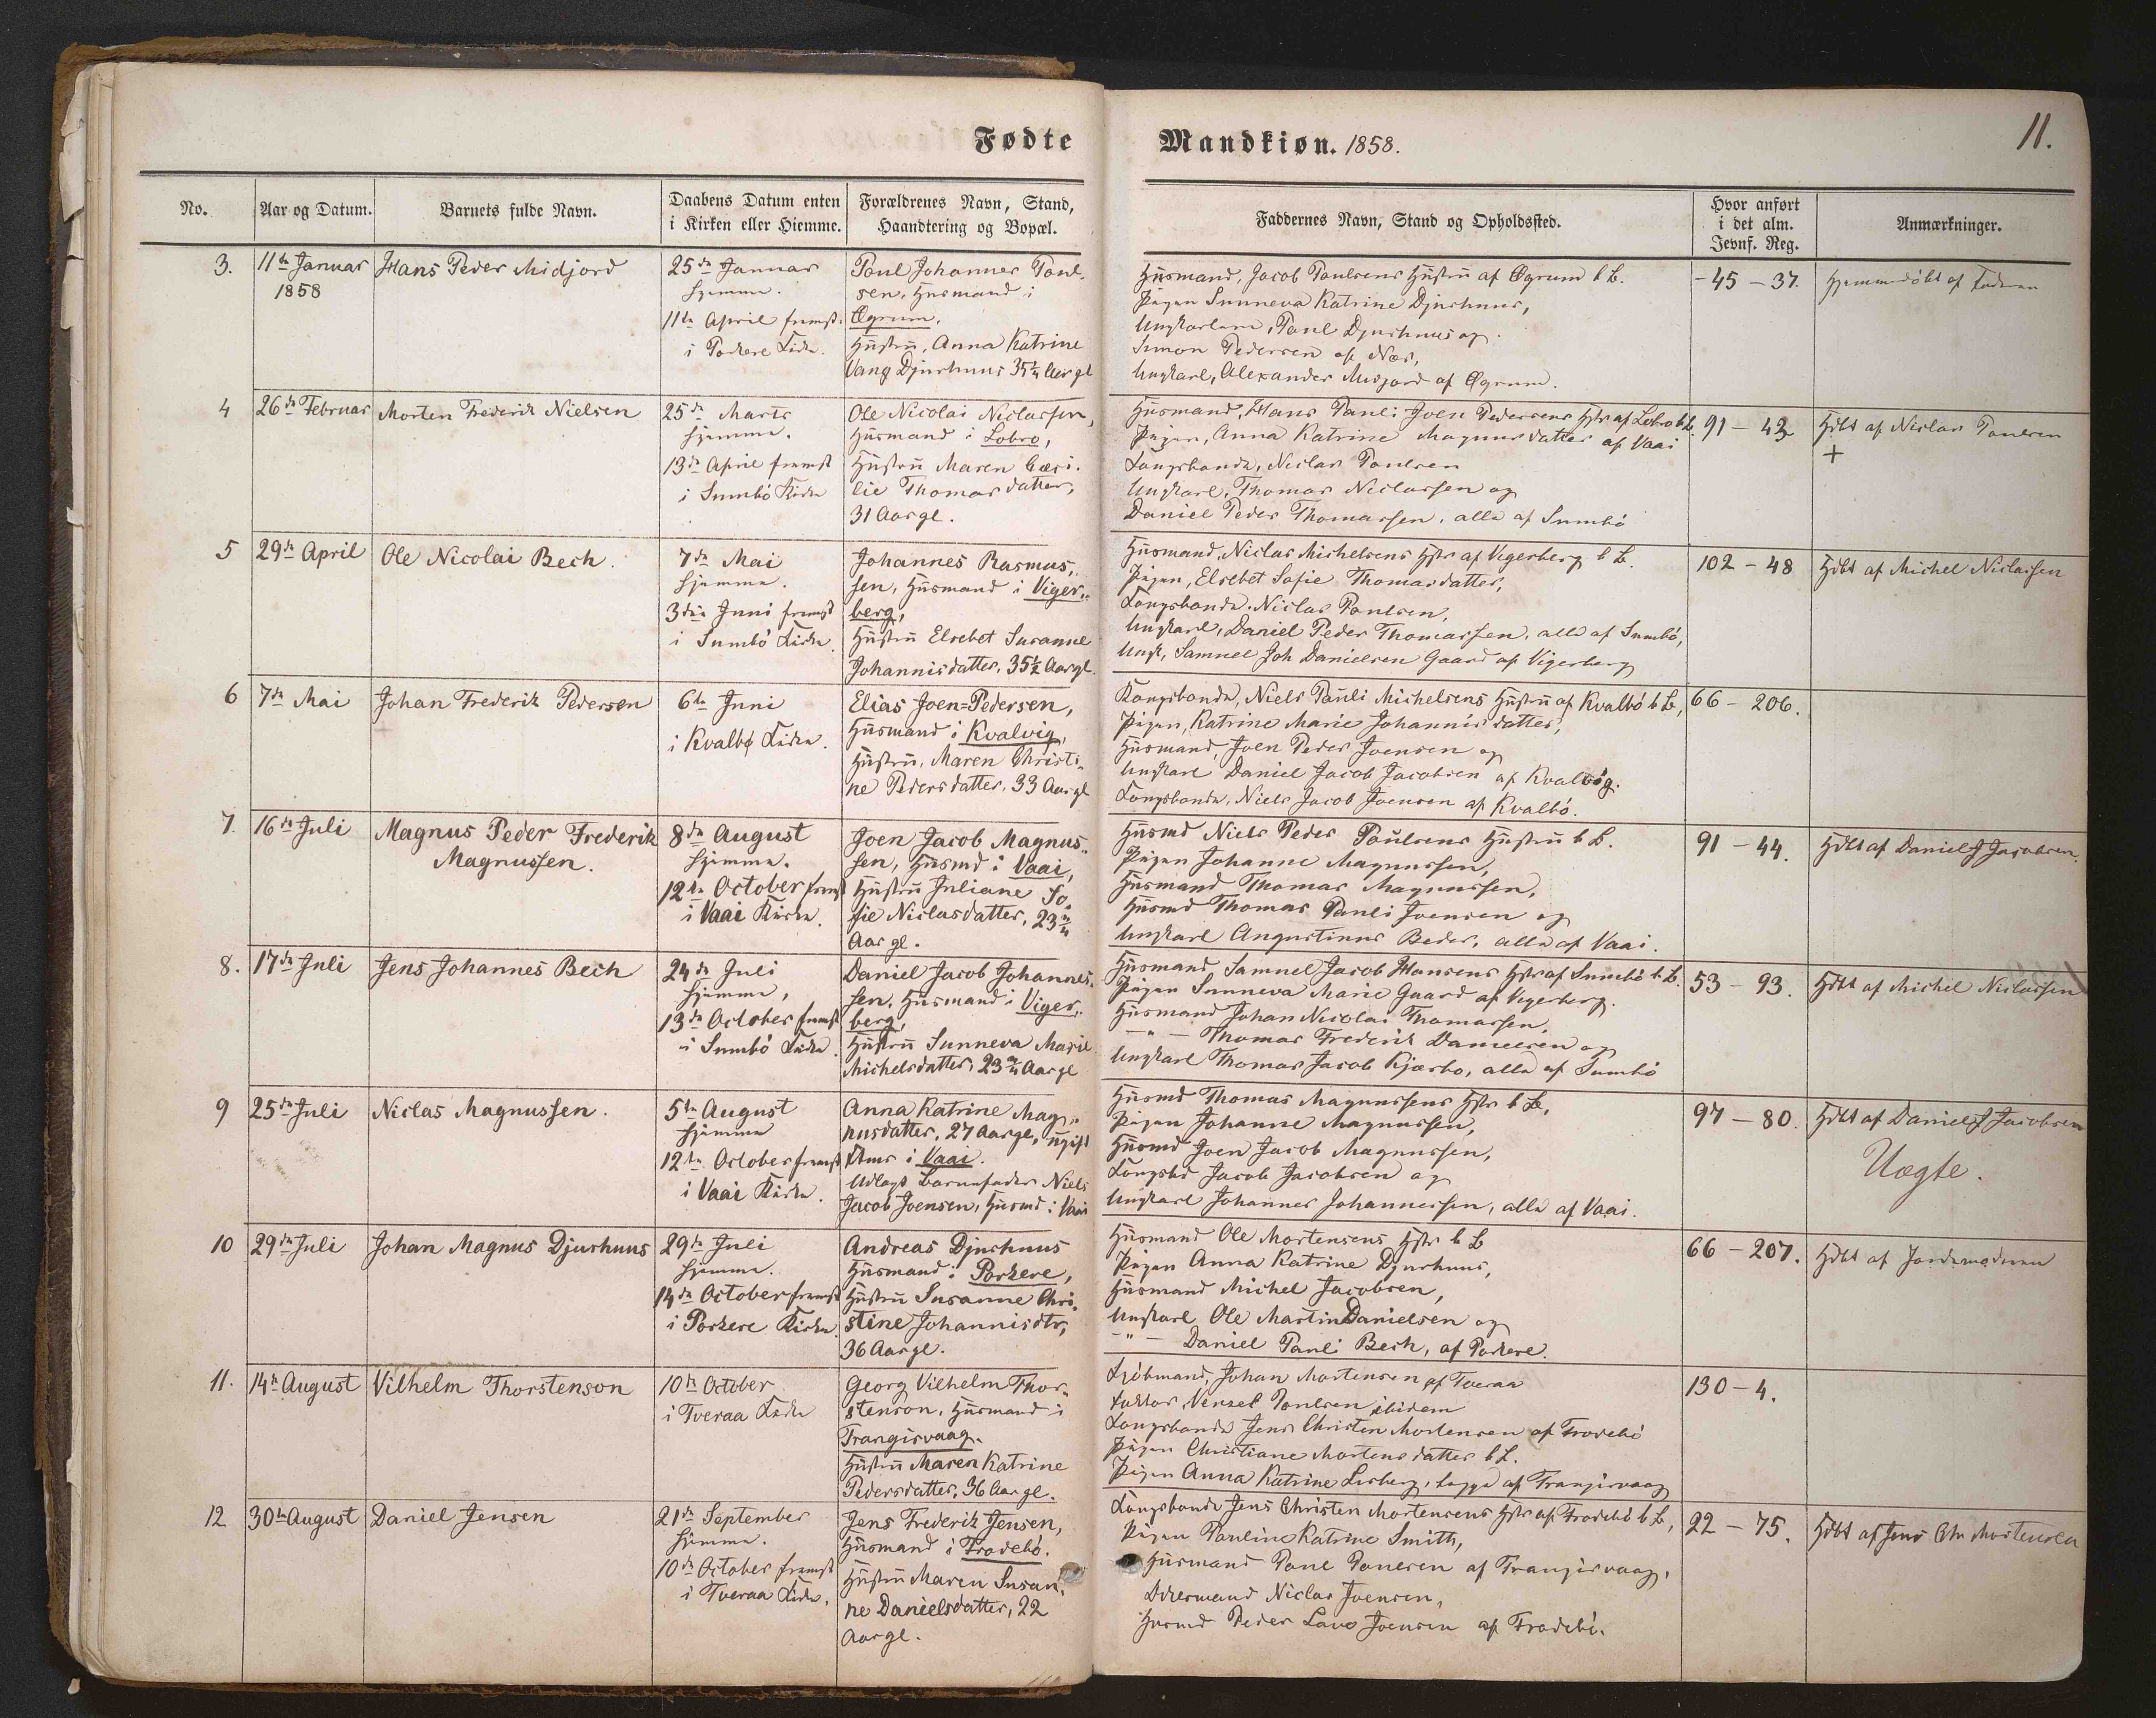 Fødte
Mandkiøn. 1858.
11.
No.
Aar og Datum.
Barnets fulde Navn.
Daabens Datum enten
i Kirken eller Hiemme.
Forældrenes Navn, Stand,
Haandtering og Bopæl.
Faddernes Navn, Stand og Opholdssted.
Hvor anført
i det alm.
Jevnf. Reg.
Anmærkninger.
3.
11te Januar
1858
Hans Peder Midjord
25de Januar
hjemme.
11te April fremst.
i Porkere Kirke.
Poul Johannes Poul-
sen, Husmand i
Øgrum,
Hustru, Anna Katrine
Vang Djurhuus 35 1/4 Aar gl
Husmand, Jacob Poulsens Hustru af Øgrum b. B.
Pigen Sunneva Katrine Djurhuus,
Ungkarlene, Poul Djurhuus og
Simon Pedersen af Næs,
Ungkarl, Alexander Midjord af Øgrum.
-45 - 37.
Hjemmedöbt af Faderen
4
26de Februar
Morten Frederik Nielsen
25de Marts
hjemme.
13de April fremst
i Sumbö Kirke
Ole Nicolai Niclassen,
Husmand i Lobro,
Hustru Maren Cæci-
lie Thomasdatter,
31 Aar gl.
Husmand, Hans Pauli Joen Pedersens Hstr af Lobro b. B.
Pigen, Anna Katrine Magnusdatter af Vaai
Kongsbonde, Niclas Poulsen
Ungkarl, Thomas Niclassen og
Daniel Peder Thomassen, alle af Sumbö
91 - 43
Hdbt af Niclas Poulsen
+
5
29de April
Ole Nicolai Bech.
7de Mai
hjemme.
3die Juni fremst
i Sumbö Kirke.
Johannes Rasmus-
sen, Husmand i Viger-
berg,
Hustru Elsebet Susanne
Johannisdatter, 35 1/2 Aar gl.
Husmand, Niclas Michelsens Hstr af Vigerberg b. B.
Pigen, Elsebet Sofie Thomasdatter,
Kongsbonde, Niclas Poulsen,
Ungkarl, Daniel Peder Thomassen, alle af Sumbö,
Ungk, Samuel Joh Danielsen Gaard af Vigerberg
102 - 48
Hdbt af Michel Niclassen
6
7de Mai
Johan Frederik Pedersen
6te Juni
i Kvalbø Kirke.
Elias Joen=Pedersen,
Husmand i Kvalvig,
Hustru, Maren Christi-
ne Pedersdatter, 33 Aar gl
Kongsbonde, Niels Pauli Michelsens Hustru af Kvalbö b. B,
Pigen, Katrine Marie Johannisdatter,
Husmand, Joen Peder Joensen og
Ungkarl Daniel Jacob Jacobsen af Kvalvig.
Kongsbonde, Niels Jacob Joensen af Kvalbö.
66 - 206.
7.
16de Juli
Magnus Peder Frederik
Magnussen.
8de August
hjemme.
12te October fremst
i Vaai Kirke.
Joen Jacob Magnus-
sen, Husmd i Vaai,
Hustru Juliane So-
fie Niclasdatter, 23 3/4
Aar gl.
Husmd Niels Peder Poulsens Hustru b. B.
Pigen Johanne Magnussen,
Husmand Thomas Magnussen,
Husmd Thomas Pauli Joensen og
Ungkarl Augustinus Beder, alle af Vaai.
91 - 44.
Hdbt af Daniel J Jacobsen.
8.
17de Juli
Jens Johannes Bech
24de Juli
hjemme,
13de October fremst
i Sumbö Kirke.
Daniel Jacob Johannes-
sen, Husmand i Viger-
berg,
Hustru Sunneva Marie
Michelsdatter, 23 3/4 Aar gl
Husmand Samuel Jacob Hansens Hstr af Sumbö b. B.
Pigen Sunneva Marie Gaard af Vigerberg.
Husmand Johan Nicolai Thomassen,
— " — Thomas Frederik Danielsen og
Ungkarl Thomas Jacob Kjærbo, alle af Sumbö
53 - 93.
Hdbt af Michel Niclassen
9
25de Juli
Niclas Magnussen.
5te August
hjemme
12te October fremst
i Vaai Kirke.
Anna Katrine Mag-
nusdatter, 27 Aar gl, ugift
i Vaai.
Udlagt Barnefader Niels
Jacob Joensen, Husmd i Vaai
Husmd Thomas Magnussens Hstr b B,
Pigen Johanne Magnussen,
Husmd Joen Jacob Magnussen,
Kongsbd Jacob Jacobsen og
Ungkarl Johannes Johannessen, alle af Vaai.
97 - 80.
Hdbt af Daniel J Jacobsen
Uægte.
10
29de Juli
Johan Magnus Djurhuus
29de Juli
hjemme.
14de October fremst
i Porkere Kirke
Andreas Djurhuus
Husmand i Porkere,
Hustru Susanne Chri-
stine Johannisdtr,
36 Aar gl.
Husmand Ole Mortensens Hstr b B
Pigen Anna Katrine Djurhuus,
Husmand Michel Jacobsen,
Ungkarl Ole Martin Danielsen og
— " — Daniel Pauli Bech, af Porkere.
66 - 207.
Hdbt af Jordemoderen
11.
14de August
Vilhelm Thorstenson
10de October
i Tveraa Kirke
Georg Vilhelm Thor-
stenson, Husmand i
Trangisvaag.
Hustru Maren Katrine
Pedersdatter, 36 Aar gl.
Kjöbmand, Johan Mortensen af Tveraa
Faktor, Venzel Poulsen ibidem
Kongsbonde Jens Christen Mortensen af Frodebö
Pigen Christiane Mortensdatter b B.
Pigen Anna Katrine Lisberg, begge af Trangisvaag
130 - 4.
12
30te August
Daniel Jensen
21de September
hjemme.
10de October fremst
i Tveraa Kirke.
Jens Frederik Jensen,
Husmand i Frodebö.
Hustru Maren Susan-
ne Danielsdatter, 22
Aar gl.
Kongsbonde Jens Christen Mortensens Hstr af Frodebö b B,
Pigen Pauline Katrine Smith,
Husmand Poul Poulsen af Trangisvaag,
Niclas Joensen,
Husmd Peder Lavo Joensen af Frodebö.
22 - 75.
Hdbt af Jens Chr Mortensen